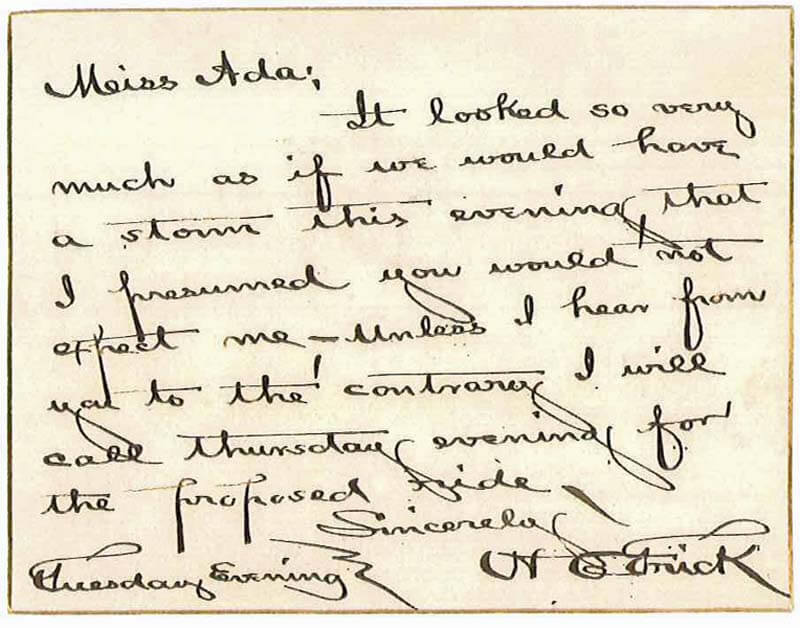 Meiss Ada;
It looked so very
much as if we would have
a storm this evening, that
I presumed you would not
expect me – Unless I hear from
you to the contrary I will
call thursday evening for
the proposed ride
Sincerely
Tuesday Evening H C Frick